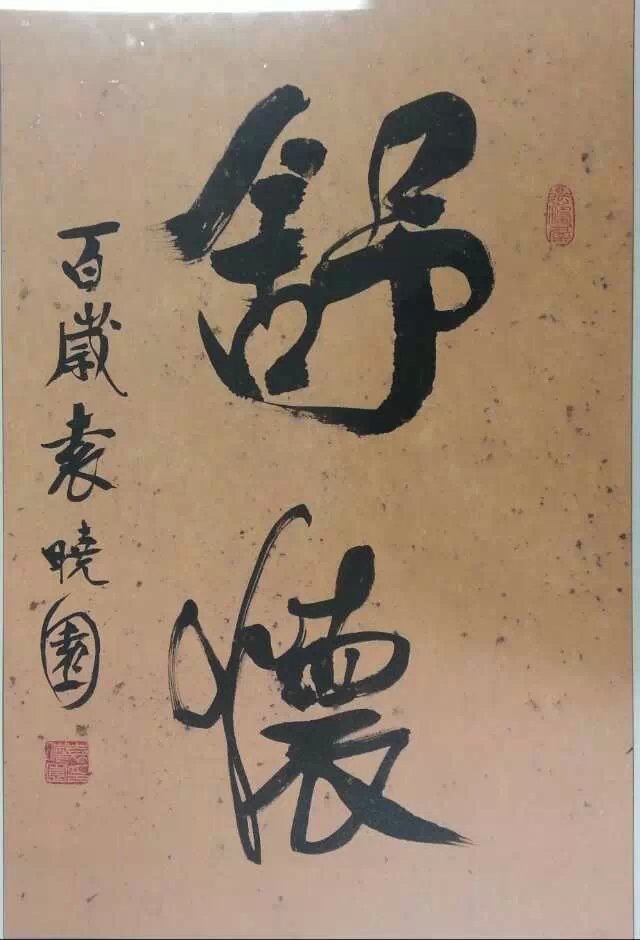 舒懷
百歲袁曉園